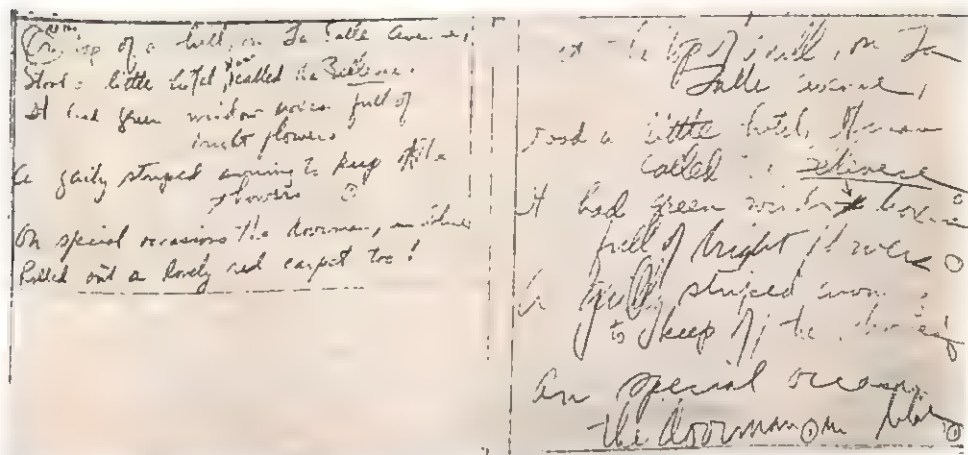 top of a hill, on La Salle Avenue,
Stood a little hotel, called the
It had green window boxes full of
bright flowers
A gaily striped awning to keep off the
showers
On special occasions the doorman, in blue
Rolled out a lovely red carpet too!
the top of a hill, on La
Salle Avenue,
stood a little hotel,
called
It had green window boxes
full of bright flowers
A gaily striped
to keep off the showers
On special occasions
the doorman, in blue